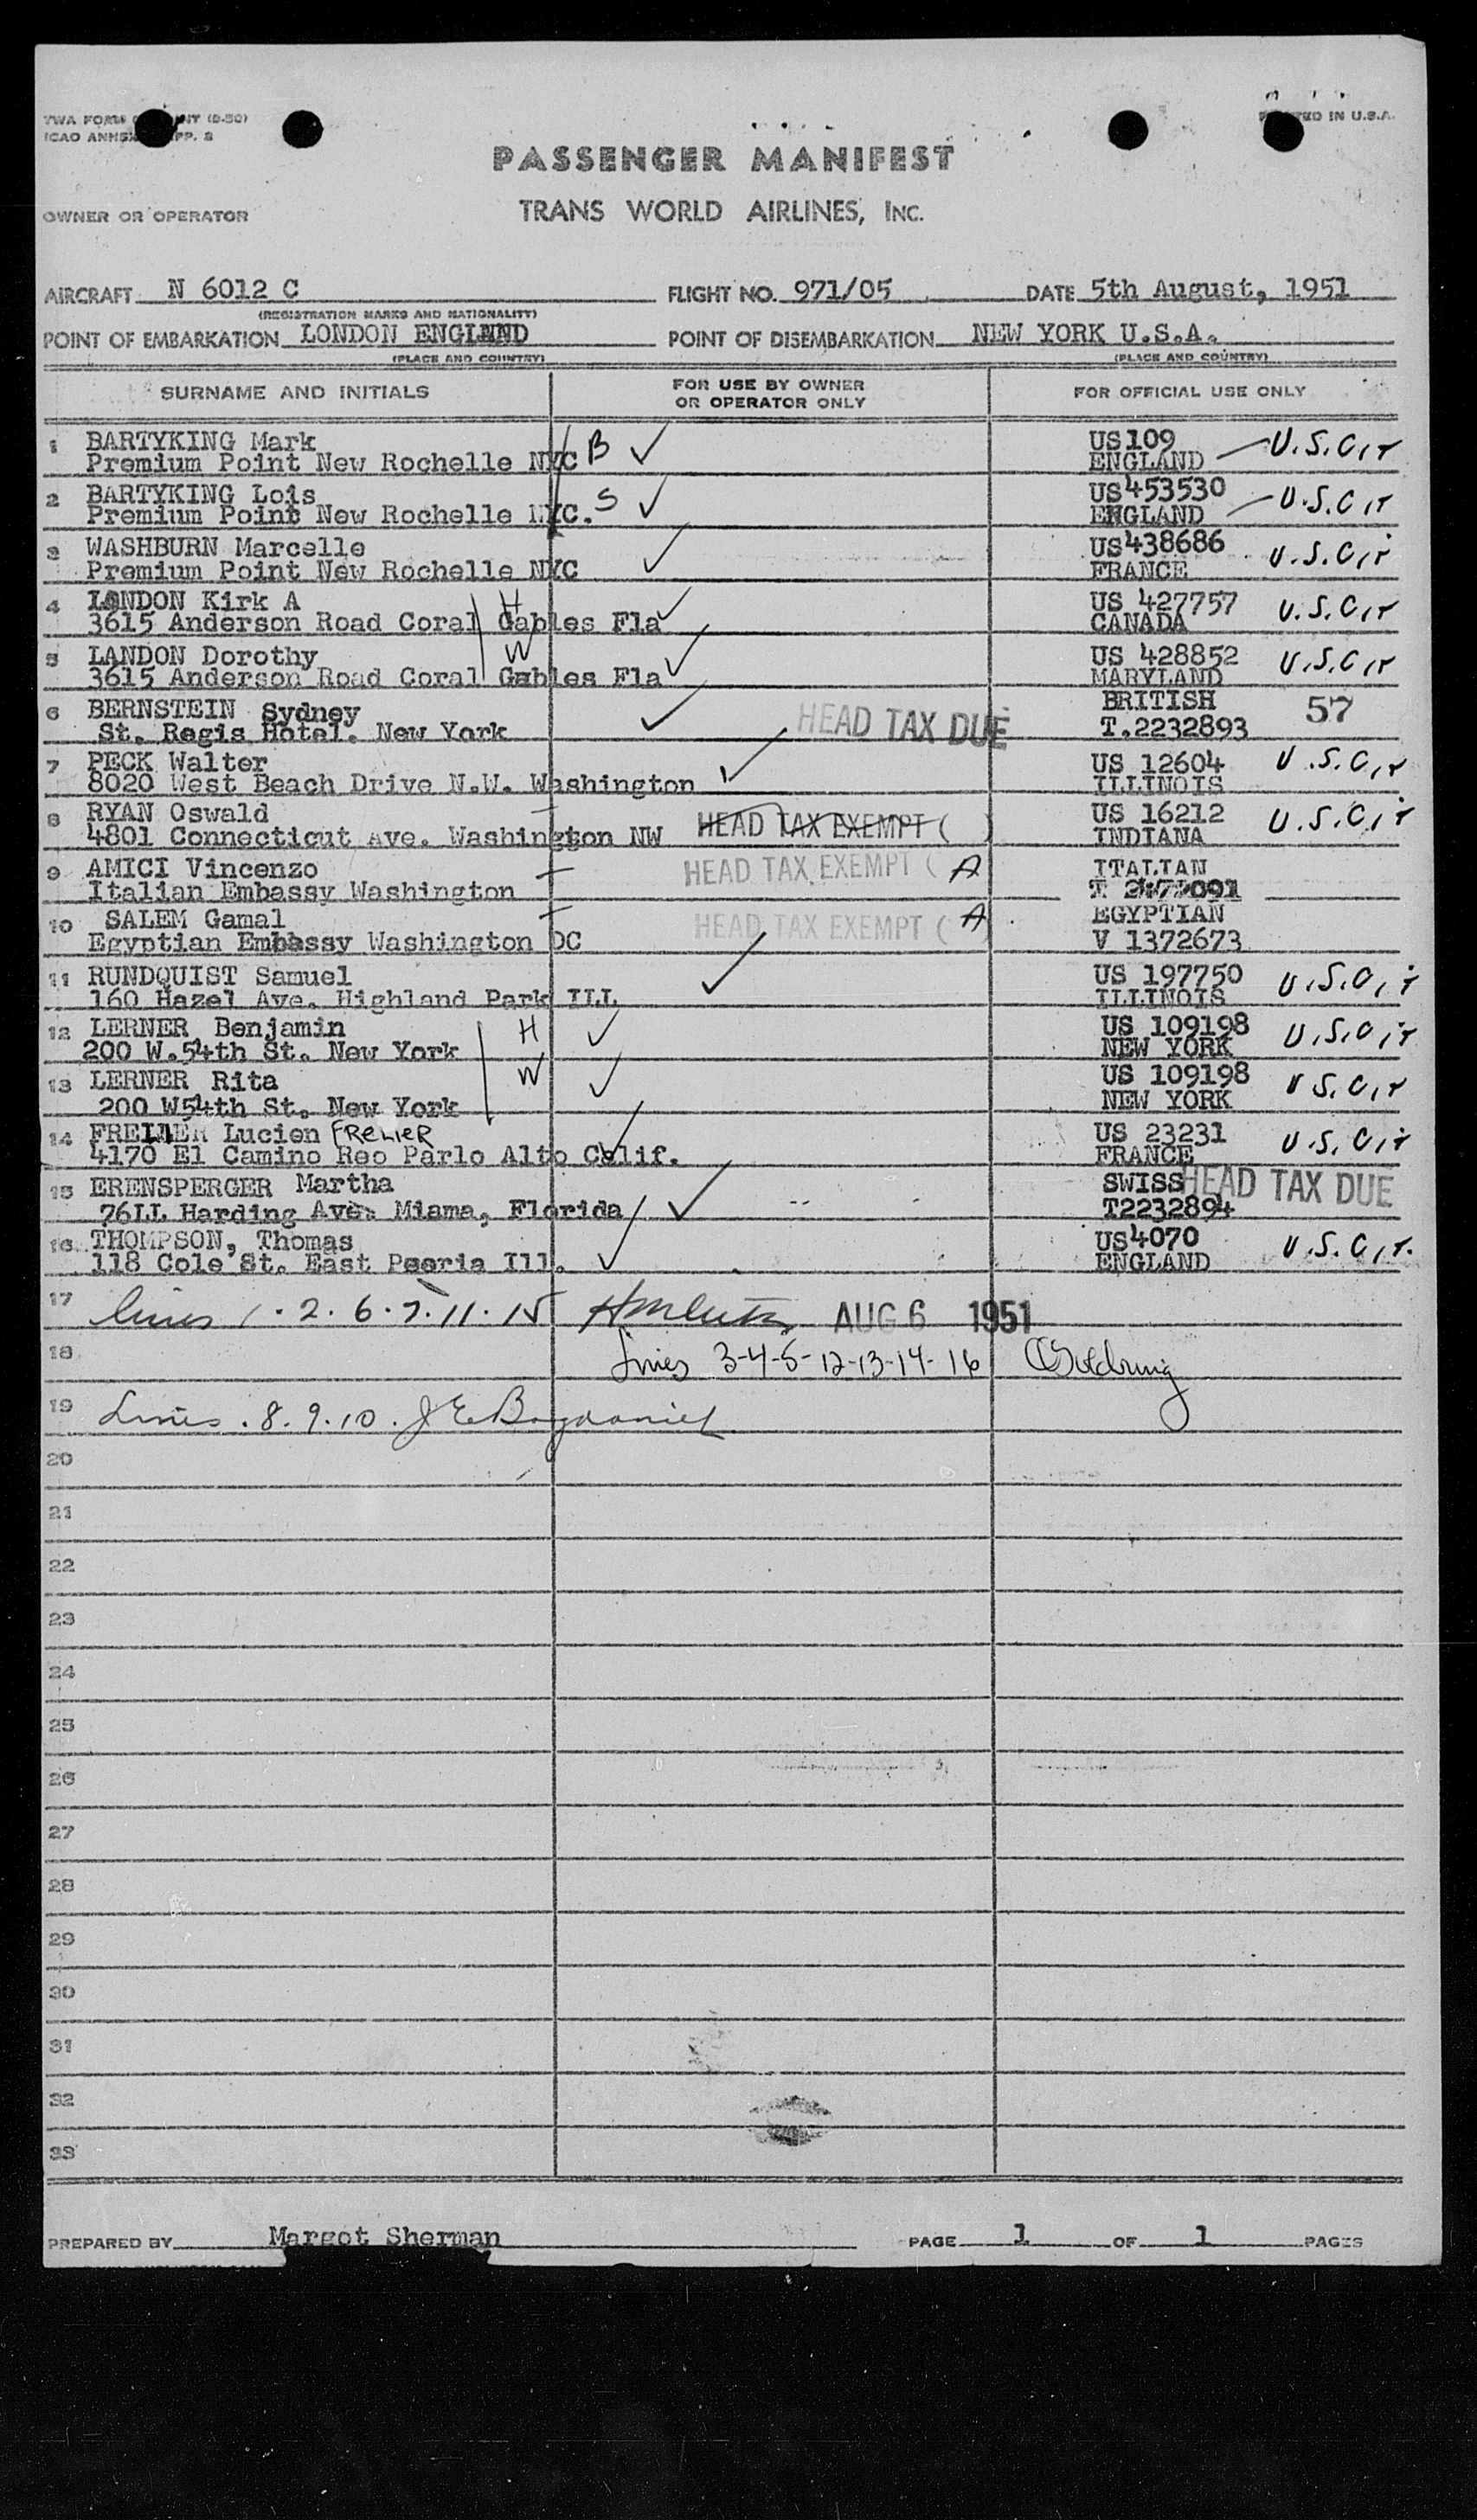 TWA FORM
ICAO ANNEX
PRINTED IN U.S.A.
PASSENGER MANIFEST
OWNER OR OPERATOR TRANS WORLD AIRLINES, INC.
AIRCRAFT N 6012 C FLIGHT NO. 971/05 DATE 5th August, 1951
(REGISTRATION MARKS AND NATIONALITY)
POINT OF EMBARKATION LONDON ENGLAND POINT OF DISEMBARKATION NEW YORK U.S.A.
(PLACE AND COUNTRY) (PLACE AND COUNTRY)
SURNAME AND INITIALS FOR USE BY OWNER OR OPERATOR ONLY FOR OFFICIAL USE ONLY
1 BARTYKING Mark B ✓ US109 U.S.Cit
Premium Point New Rochelle NYC ENGLAND
2 BARTYKING Lois S ✓ US453530 U.S.Cit
Premium Point New Rochelle NYC. ENGLAND
3 WASHBURN Marcelle ✓ US438686 U.S.Cit
Premium Point New Rochelle NYC FRANCE
4 LONDON Kirk A H ✓ US 427757 U.S.Cit
3615 Anderson Road Coral Gables Fla CANADA
5 LANDON Dorothy W ✓ US 428852 U.S.Cit
3615 Anderson Road Coral Gables Fla MARYLAND
6 BERNSTEIN Sydney ✓ HEAD TAX DUE BRITISH 57
St. Regis Hotel. New York T.2232893
7 PECK Walter ✓ US 12604 U.S.Cit
8020 West Beach Drive N.W. Washington ILLINOIS
8 RYAN Oswald HEAD TAX EXEMPT ( ) US 16212 U.S.Cit
4801 Connecticut Ave. Washington NW INDIANA
9 AMICI Vincenzo HEAD TAX EXEMPT ( A ITALIAN
Italian Embassy Washington T
10 SALEM Gamal HEAD TAX EXEMPT ( A ) EGYPTIAN
Egyptian Embassy Washington DC V 1372673
11 RUNDQUIST Samuel ✓ US 197750 U.S.Cit
160 Hazel Ave. Highland Park ILL ILLINOIS
12 LERNER Benjamin H ✓ US 109198 U.S.Cit
200 W.54th St. New York NEW YORK
13 LERNER Rita W ✓ US 109198 U.S.Cit
200 W54th St. New York NEW YORK
14 Lucien FRELIER ✓ US 23231 U.S.Cit
4170 El Camino Reo Parlo Alto Calif. FRANCE
15 ERENSPERGER Martha ✓ SWISS HEAD TAX DUE
76LL Harding Ave. Miama, Florida T2232894
16 THOMPSON, Thomas ✓ US4070 U.S.Cit.
118 Cole St. East Peoria Ill. ENGLAND
17 lines 1.2.6.7.11.15 AUG 6 1951
18 Lines 3-4-5-12-13-14-16 Goldring
19 Lines.8.9.10. J E
20
21
22
23
24
25
26
27
28
29
30
31
32
33
PREPARED BY Margot Sherman PAGE 1 OF 1 PAGES